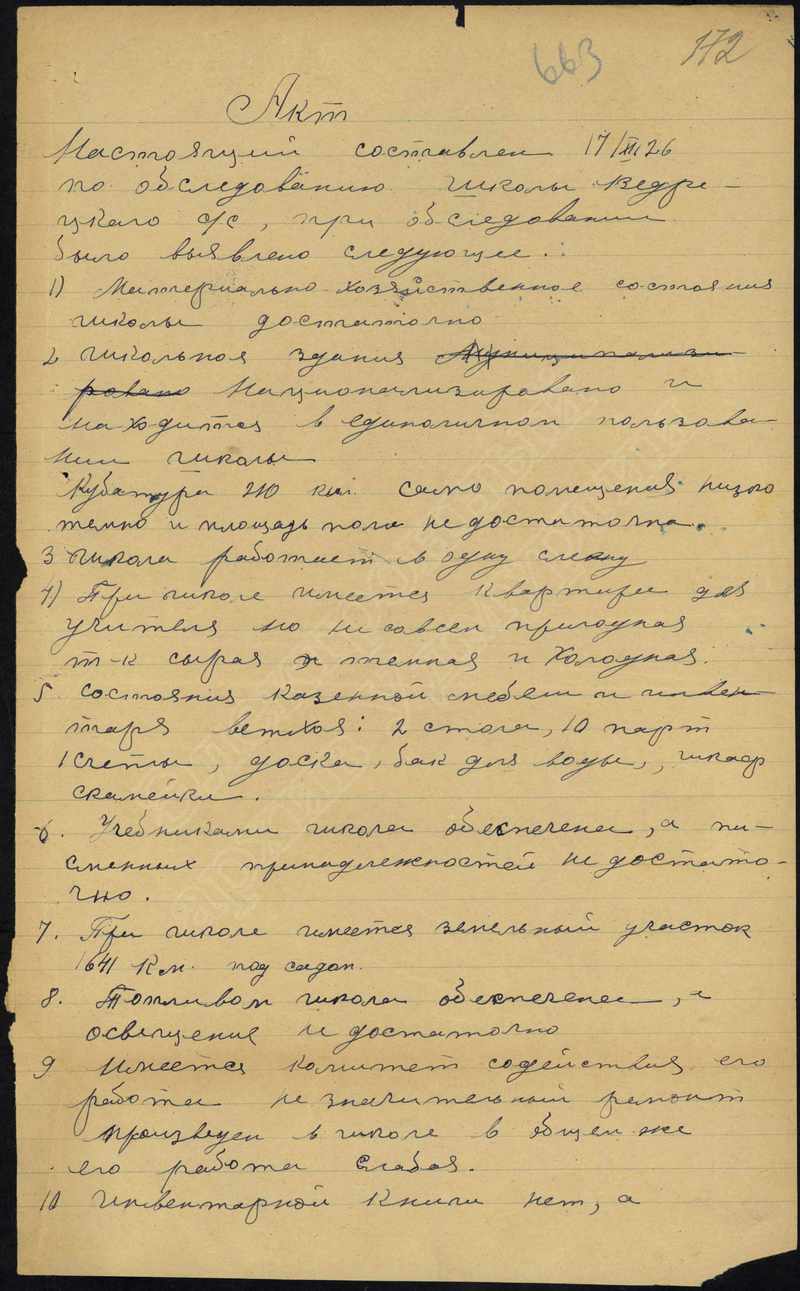 663 172
Акт
Настоящий составлен 17/XII 26
по обследованию школы Ведре-
цкаго с/с, при обследовании
было выявлено следующее:
1) Материально-хозяйственное состояния
школы достаточно
2 Школьная здания Муниципализи-
ровано Национализировано и
находится в единоличном пользова-
нии школы
Кубатура 210 км. само помещения низко
темно и площадь пола не достаточна.
3 Школа работает в одну смену
4) При школе имеется квартира для
учителя но не совсем пригодная
т-к сырая и темная и холодная.
5 Состояния казенной мебели и инвен-
таря ветхоя: 2 стола, 10 парт
1 счеты, доска, бак для воды, шкаф
скамейки.
6. Учебниками школа обеспечена, а пи-
сменных принадлежностей не достато-
чно.
7. При школе имеется земельный участок
1641 км. под садом.
8. Топливом школа обеспечена, и
освещения и достаточно
9 Имеется комитет содействия его
работа не значительный ремонт
произведен в школе в общем же
его работа слабая.
10 Инвентарной книги нет, а